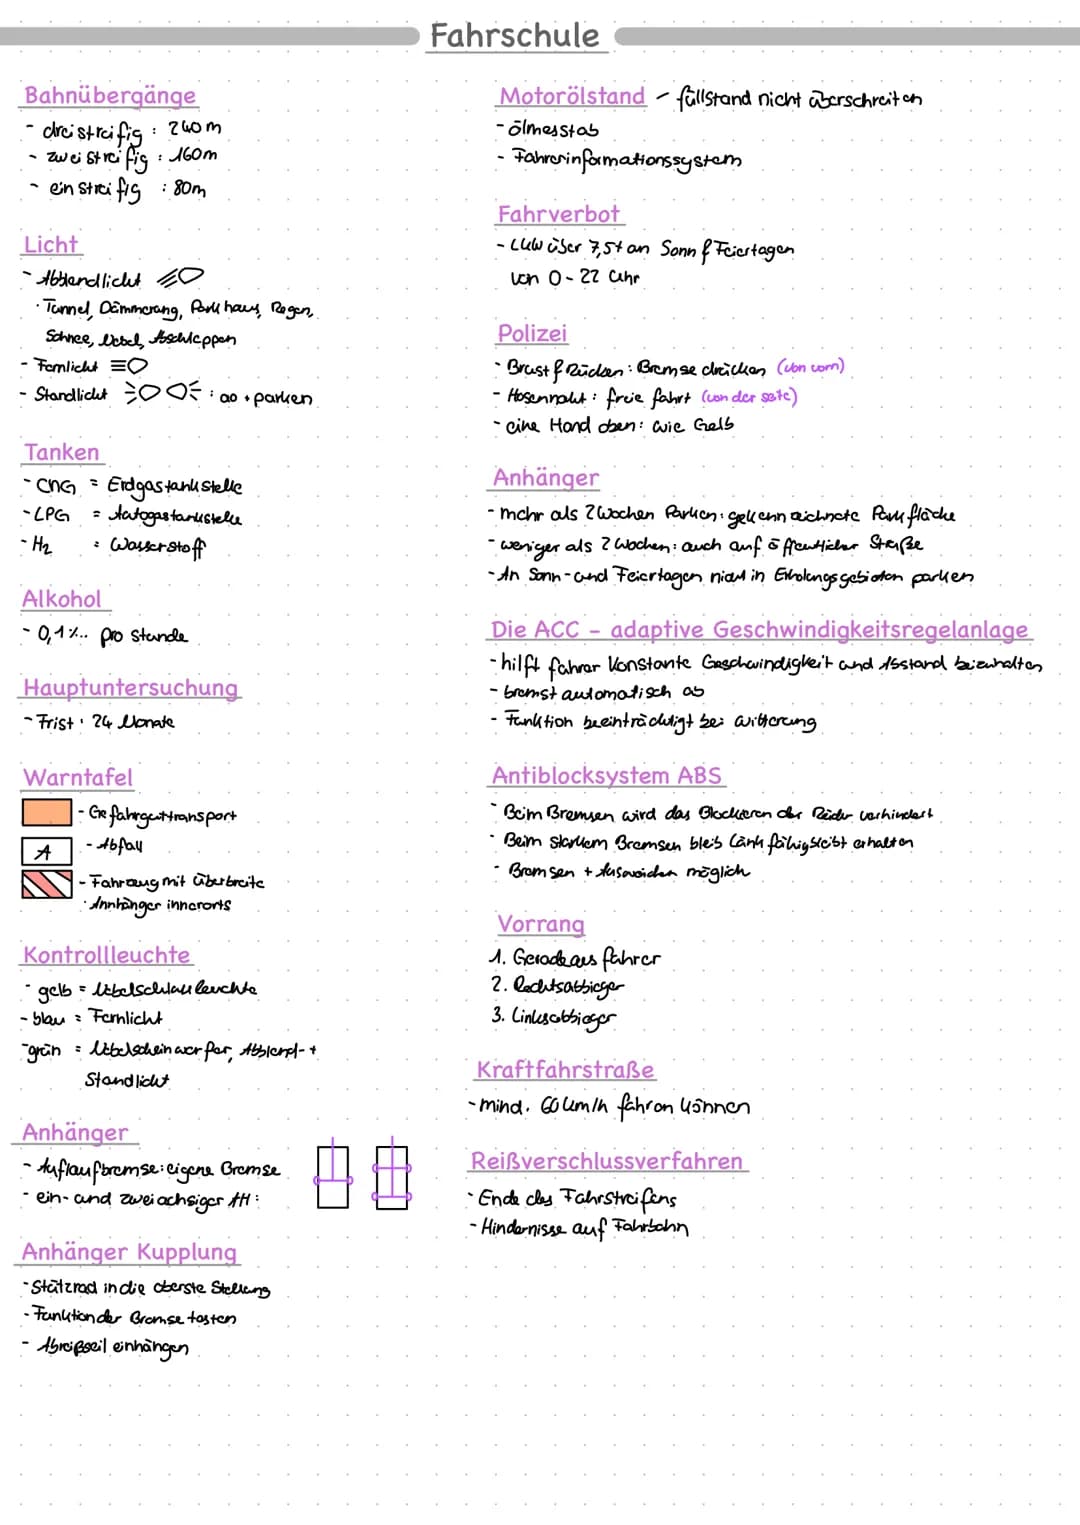 Fahrschule
Bahnübergänge
- dreistreifig : 240m
- zweistreifig : 160m
- einstreifig : 80m
Licht
- Abblendlicht
· Tunnel, Dämmerung, Parkhaus, Regen,
Schnee, Nebel, Abschleppen
- Fernlicht
- Standlicht : ao + parken
Tanken
- CNG = Erdgastankstelle
- LPG = Autogastankstelle
- H2 = Wasserstoff
Alkohol
- 0,1%.. pro Stunde
Hauptuntersuchung
- Frist : 24 Monate
Warntafel
- Gefahrguttransport
A - Abfall
- Fahrzeug mit Überbreite
· Annhänger innerorts
Kontrollleuchte
- gelb = Nebelschlussleuchte
- blau = Fernlicht
- grün = Nebelscheinwerfer, Abblend- +
Standlicht
Anhänger
- Auflaufbremse: eigene Bremse
- ein- und zweiachsiger AH :
Anhänger Kupplung
- Stützrad in die oberste Stellung
- Funktion der Bremse testen
- Abreißseil einhängen
Motorölstand - füllstand nicht überschreiten
- ölmesstab
- Fahrerinformationssystem
Fahrverbot
- LKW über 7,5t an Sonn & Feiertagen
von 0 - 22 Uhr
Polizei
- Brust & Rücken : Bremse drücken (von vorn)
- Hosennaht : freie fahrt (von der seite)
- eine Hand oben: wie Gelb
Anhänger
- mehr als 2 Wochen Parken: gekennzeichnete Parkfläche
- weniger als 2 Wochen: auch auf öffentlicher Straße
- An Sonn- und Feiertagen nicht in Erholungsgebieten parken
Die ACC - adaptive Geschwindigkeitsregelanlage
- hilft fahrer konstante Geschwindigkeit und Abstand beizuhalten
- bremst automatisch ab
- Funktion beeinträchtigt bei witterung
Antiblocksystem ABS
- Beim Bremsen wird das Blockieren der Räder verhindert
- Beim starkem Bremsen bleib Lenkfähigbleibt erhalten
- Bremsen + Ausweichen möglich
Vorrang
1. Geradeaus fahrer
2. Rechtsabbieger
3. Linksabbieger
Kraftfahrstraße
- mind. 60 km/h fahren können
Reißverschlussverfahren
- Ende des Fahrstreifens
- Hindernisse auf Fahrbahn